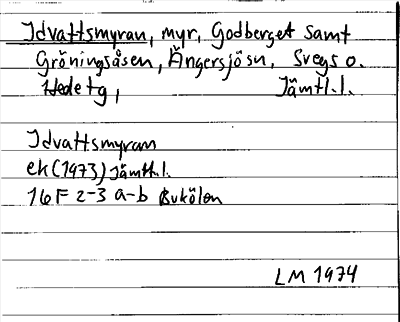 Idvattsmyran, myr, Godberget samt
Gröningsåsen, Ängersjösn, Svegs o.
Hede tg, Jämtl.l.
Idvattsmyran
ek (1973) Jämtl.l.
16F 2-3 a-b Bukölen
LM 1974